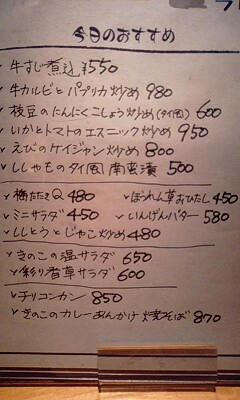 今日のおすすめ
牛すじ煮込 ¥550
牛カルビとパプリカ炒め 980
枝豆のにんにくこしょう炒め(タイ風) 600
いかとトマトのエスニック炒め 950
えびのケイジャン炒め 800
ししゃものタイ風 南蛮漬 500
梅たたきQ 480 ほうれん草おひたし 450
ミニサラダ 450 いんげんバター 580
ししとうとじゃこ炒め 480
きのこの温サラダ 650
彩り香草サラダ 600
チリコンカン 850
きのこのカレーあんかけ 焼そば 870